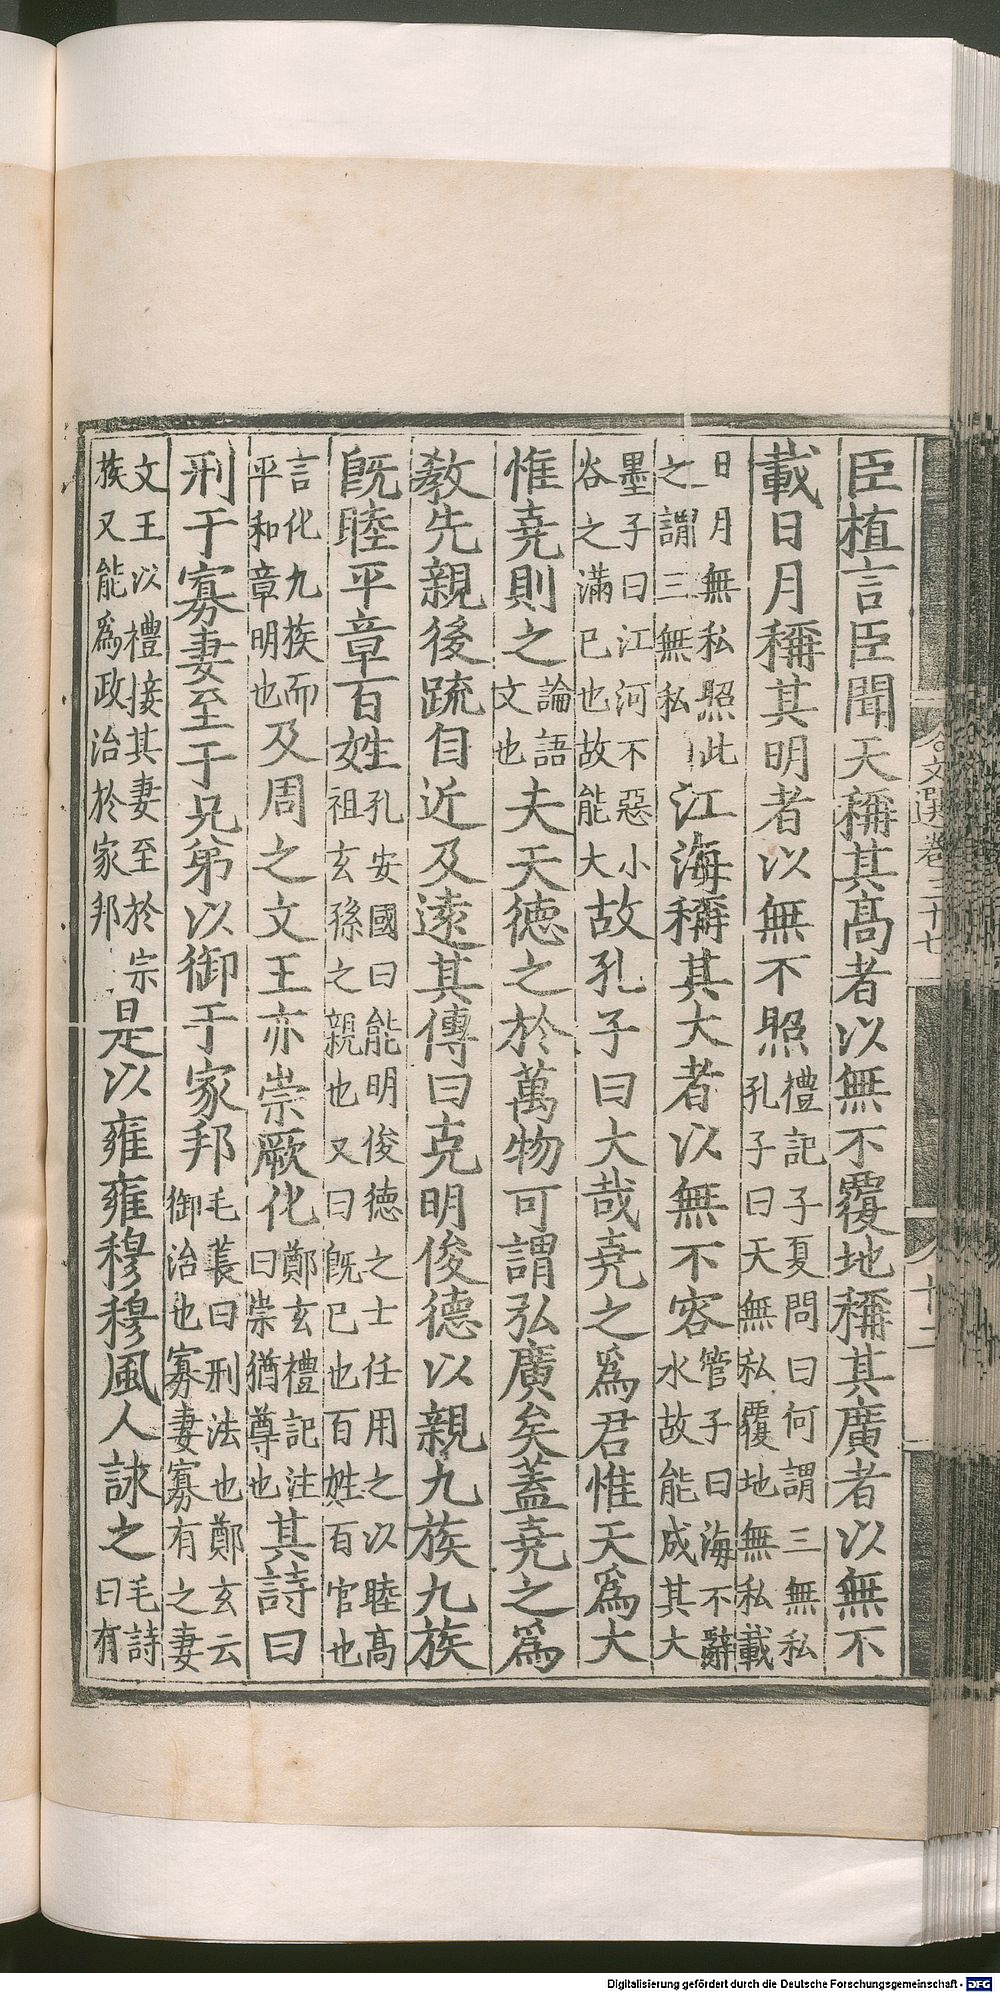 文選卷三十七
十二
臣植言臣聞天稱其髙者以無不覆地稱其廣者以無不
載日月稱其明者以無不照禮記子夏問曰何謂三無私孔子曰天無私覆地無私載
日月無私照此之謂三無私江海稱其大者以無不容管子曰海不辭水故能成其大
墨子曰江河不惡小谷之滿已也故能大故孔子曰大哉堯之爲君惟天爲大
惟堯則之論語文也夫天德之於萬物可謂弘廣矣蓋堯之爲
教先親後踈自近及遠其傳曰克明俊德以親九族九族
旣睦平章百姓孔安國曰能明俊德之士任用之以睦髙祖玄孫之親也又曰旣已也百姓百官也
言化九族而平和章明也及周之文王亦崇厥化鄭玄禮記注曰崇猶尊也其詩曰
刑于寡妻至于兄弟以御于家邦毛萇曰刑法也鄭玄云御治也寡妻寡有之妻
文王以禮接其妻至於宗族又能爲政治於家邦是以雍雍穆穆風人詠之毛詩曰有
Digitalisierung gefördert durch die Deutsche Forschungsgemeinschaft - DFG